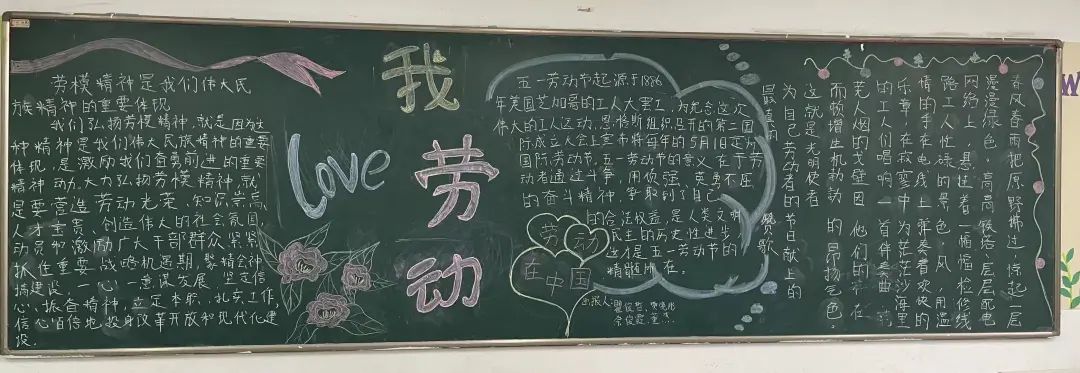 劳模精神是我们伟大民
族精神的重要体现
我们弘扬劳模精神,就是因为这
种精神是我们伟大民族精神的重要
体现,是激励我们奋勇前进的重要
精神动。大力弘扬劳模精神,就
是要营造劳动光荣、知识崇高、
人才宝贵、创造伟大的社会氛围,
动员和激励广大干部群众紧紧
抓住重要战略机遇期,聚精会神
搞建设、一心一意谋发展、坚定信
心、振奋精神,立足本职、扎实工作,
信心百倍地投身改革开放和现代化建
设。
Love
我
劳
动
五一劳动节起源于1886
年美国芝加哥的工人大罢工,为纪念这次
伟大的工人运动,恩格斯组织召开的第二国
际成立大会上宣布将每年的5月1日定为
国际劳动节。五一劳动节的意义在于劳
动者通过斗争,用顽强、英勇不屈
的奋斗精神,争取到了自己
的合法权益,是人类文明
民主的历史性进步,
这才是五一劳动节的
精髓所在。
劳动
在中国
出报人:
春风春雨把原野拂过,惊起一层
漫漫绿色,高高铁塔、层层配电
网络上,悬过着一幅幅检修线
路工人忙碌的景色,风,用温
情的手在电线上弹奏着欢快的
乐章,在寂寥中为茫茫沙海里
的工人们唱响一首伴奏曲,荒
老人烟的戈壁因他们的存在
而顿增生机勃勃的昂扬气色。
这就是光明使者
为自己劳动者的节日献上的
最真的赞歌